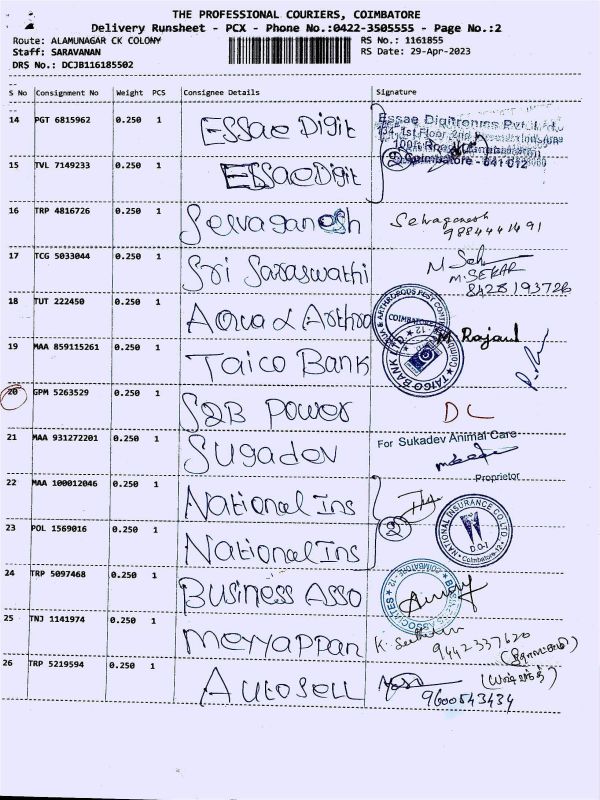 THE PROFESSIONAL COURIERS, COIMBATORE
Delivery Runsheet - PCX - Phone No.:0422-3505555 - Page No.:2
Route: ALAMUNAGAR CK COLONY RS No.: 1161855
Staff: SARAVANAN RS Date: 29-Apr-2023
DRS No.: DCJB116185502
S No Consignment No Weight PCS Consignee Details Signature
14 PGT 6815962 0.250 1 ESSae Digit
Essae Digitronics Pvt. Ltd.
100ft Road
15 TVL 7149233 0.250 1 ESSae Digit
② Coimbatore - 641 012
16 TRP 4816726 0.250 1 Selvaganesh Selvaganesh
9884441491
17 TCG 5033044 0.250 1 Sri Saraswathi
M. SEKAR
8428193726
18 TUT 222450 0.250 1 Aqua & Arthro
COIMBATORE
M Rajaul
19 MAA 859115261 0.250 1 Taico Bank TAICO BANK LTD.
20 GPM 5263529 0.250 1 S2B Power DL
21 MAA 931272201 0.250 1 Sugadev For Sukadev Animal Care
Proprietor
22 MAA 100012046 0.250 1 National Ins
NATIONAL INSURANCE CO. LTD.
D.O-I
Coimbatore-12
23 POL 1569016 0.250 1 National Ins ②
24 TRP 5097468 0.250 1 Business Asso
BUSINESS ASSOCIATES COIMBATORE - 12
25 TNJ 1141974 0.250 1 Meyyappan
9442337620
26 TRP 5219594 0.250 1 Autosell
9600543434